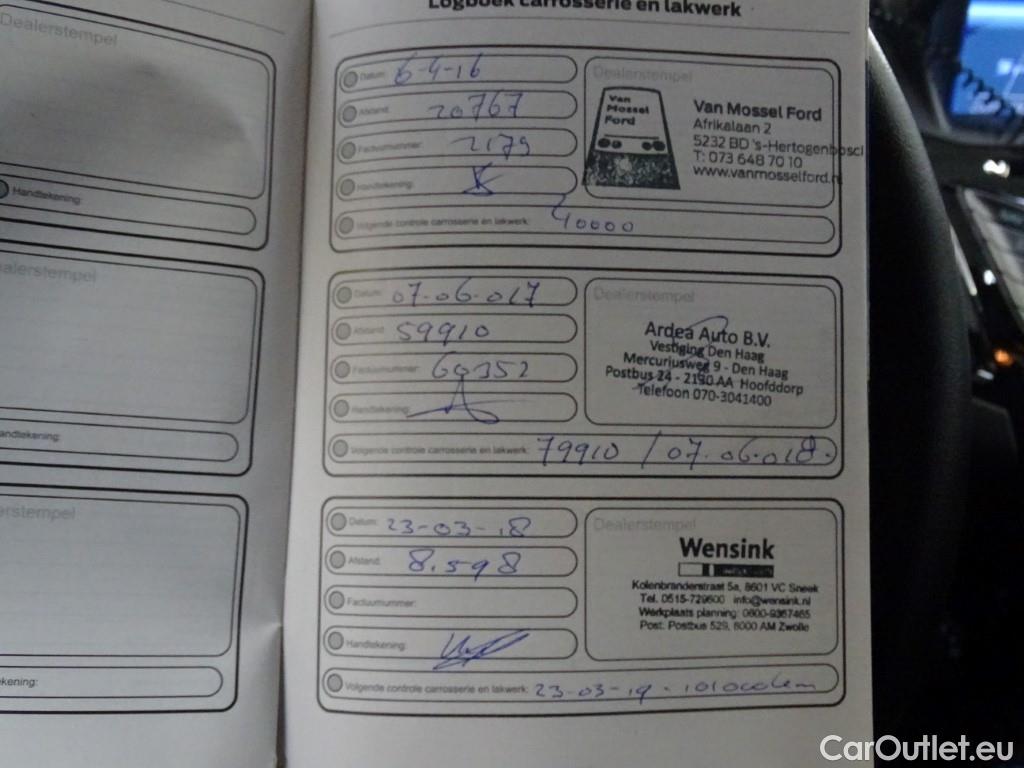 Logboek carrosserie en lakwerk
Dealerstempel
Handtekening:
Datum: 6-4-16
Afstand: 20767
Factuurnummer: 2179
Handtekening:
Volgende controle carrosserie en lakwerk: 40000
Dealerstempel
Van
Mossel
Ford
Van Mossel Ford
Afrikalaan 2
5232 BD 's-Hertogenbosch
T: 073 648 70 10
www.vanmosselford.nl
ealerstempel
andtekening:
Datum: 07-06-017
Afstand: 59910
Factuurnummer: 60352
Handtekening:
Volgende controle carrosserie en lakwerk: 79910 / 07-06-018.
Dealerstempel
Ardea Auto B.V.
Vestiging Den Haag
Mercuriusweg 9 - Den Haag
Postbus 24 - 2130 AA Hoofddorp
Telefoon 070-3041400
erstempel
ekening:
Datum: 23-03-18
Afstand: 8.598
Factuurnummer:
Handtekening:
Volgende controle carrosserie en lakwerk: 23-03-19
Dealerstempel
Wensink
Kolenbranderstraat 5a, 8601 VC Sneek
Tel. 0515-729600 info@wensink.nl
Werkplaats planning: 0800-9367465
Post: Postbus 529, 8000 AM Zwolle
CarOutlet.eu